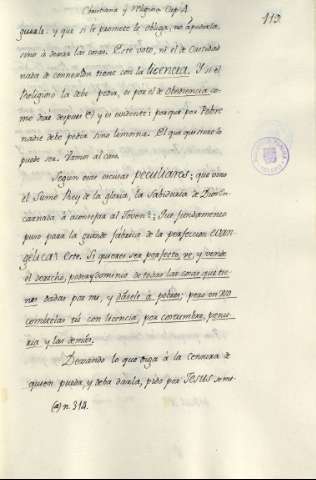 Christiana y Religiosa Cap. 4.
119.
guarle. y que si lo promete le obliga, no à pedirla,
sino à dexar las cosas. Este voto, ni el de Castidad
nada de connexîon tiene con la licencia. Y si el
Religioso la debe pedir, es por el de obediencia co-
mo diré despues (a) y es evidente: porque por Pobre
nadie debe pedir sino limosna. El que quisiere lo
puede ser. Vamos al caso.
Segun esto escusar peculiares: que vino
el Sumo Rey de la gloria, la Sabiduria de Dios En-
carnada à aconsejar al Joven?; Fue fundamento
puro para la grande fabrica de la perfeccion evan-
gélica? este. Si quieres ser perfecto, ve, y vende
el derecho, poder y dominio de todas las cosas que tie-
nes dadas por mi, y dáselo à pobres; pero
con licencia, por costumbre, penu-
ria y las demás.
Dexando lo que diga à la censura de
quien pueda, y deba darla, pido por Jesus se me
(a) n. 314.